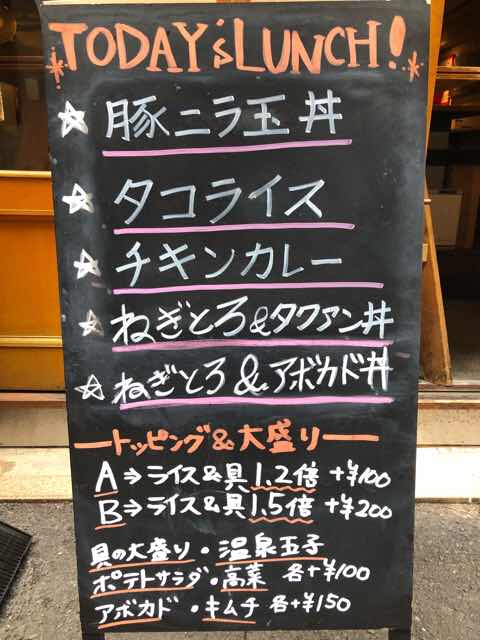 TODAY'S LUNCH!
☆ 豚ニラ玉丼
☆ タコライス
☆ チキンカレー
☆ ねぎとろ&タクアン丼
☆ ねぎとろ&アボカド丼
ートッピング&大盛りー
A⇒ライス&具1.2倍 +¥100
B⇒ライス&具1.5倍 +¥200
具の大盛り・温泉玉子
ポテトサラダ・高菜 各+¥100
アボカド・キムチ 各+¥150